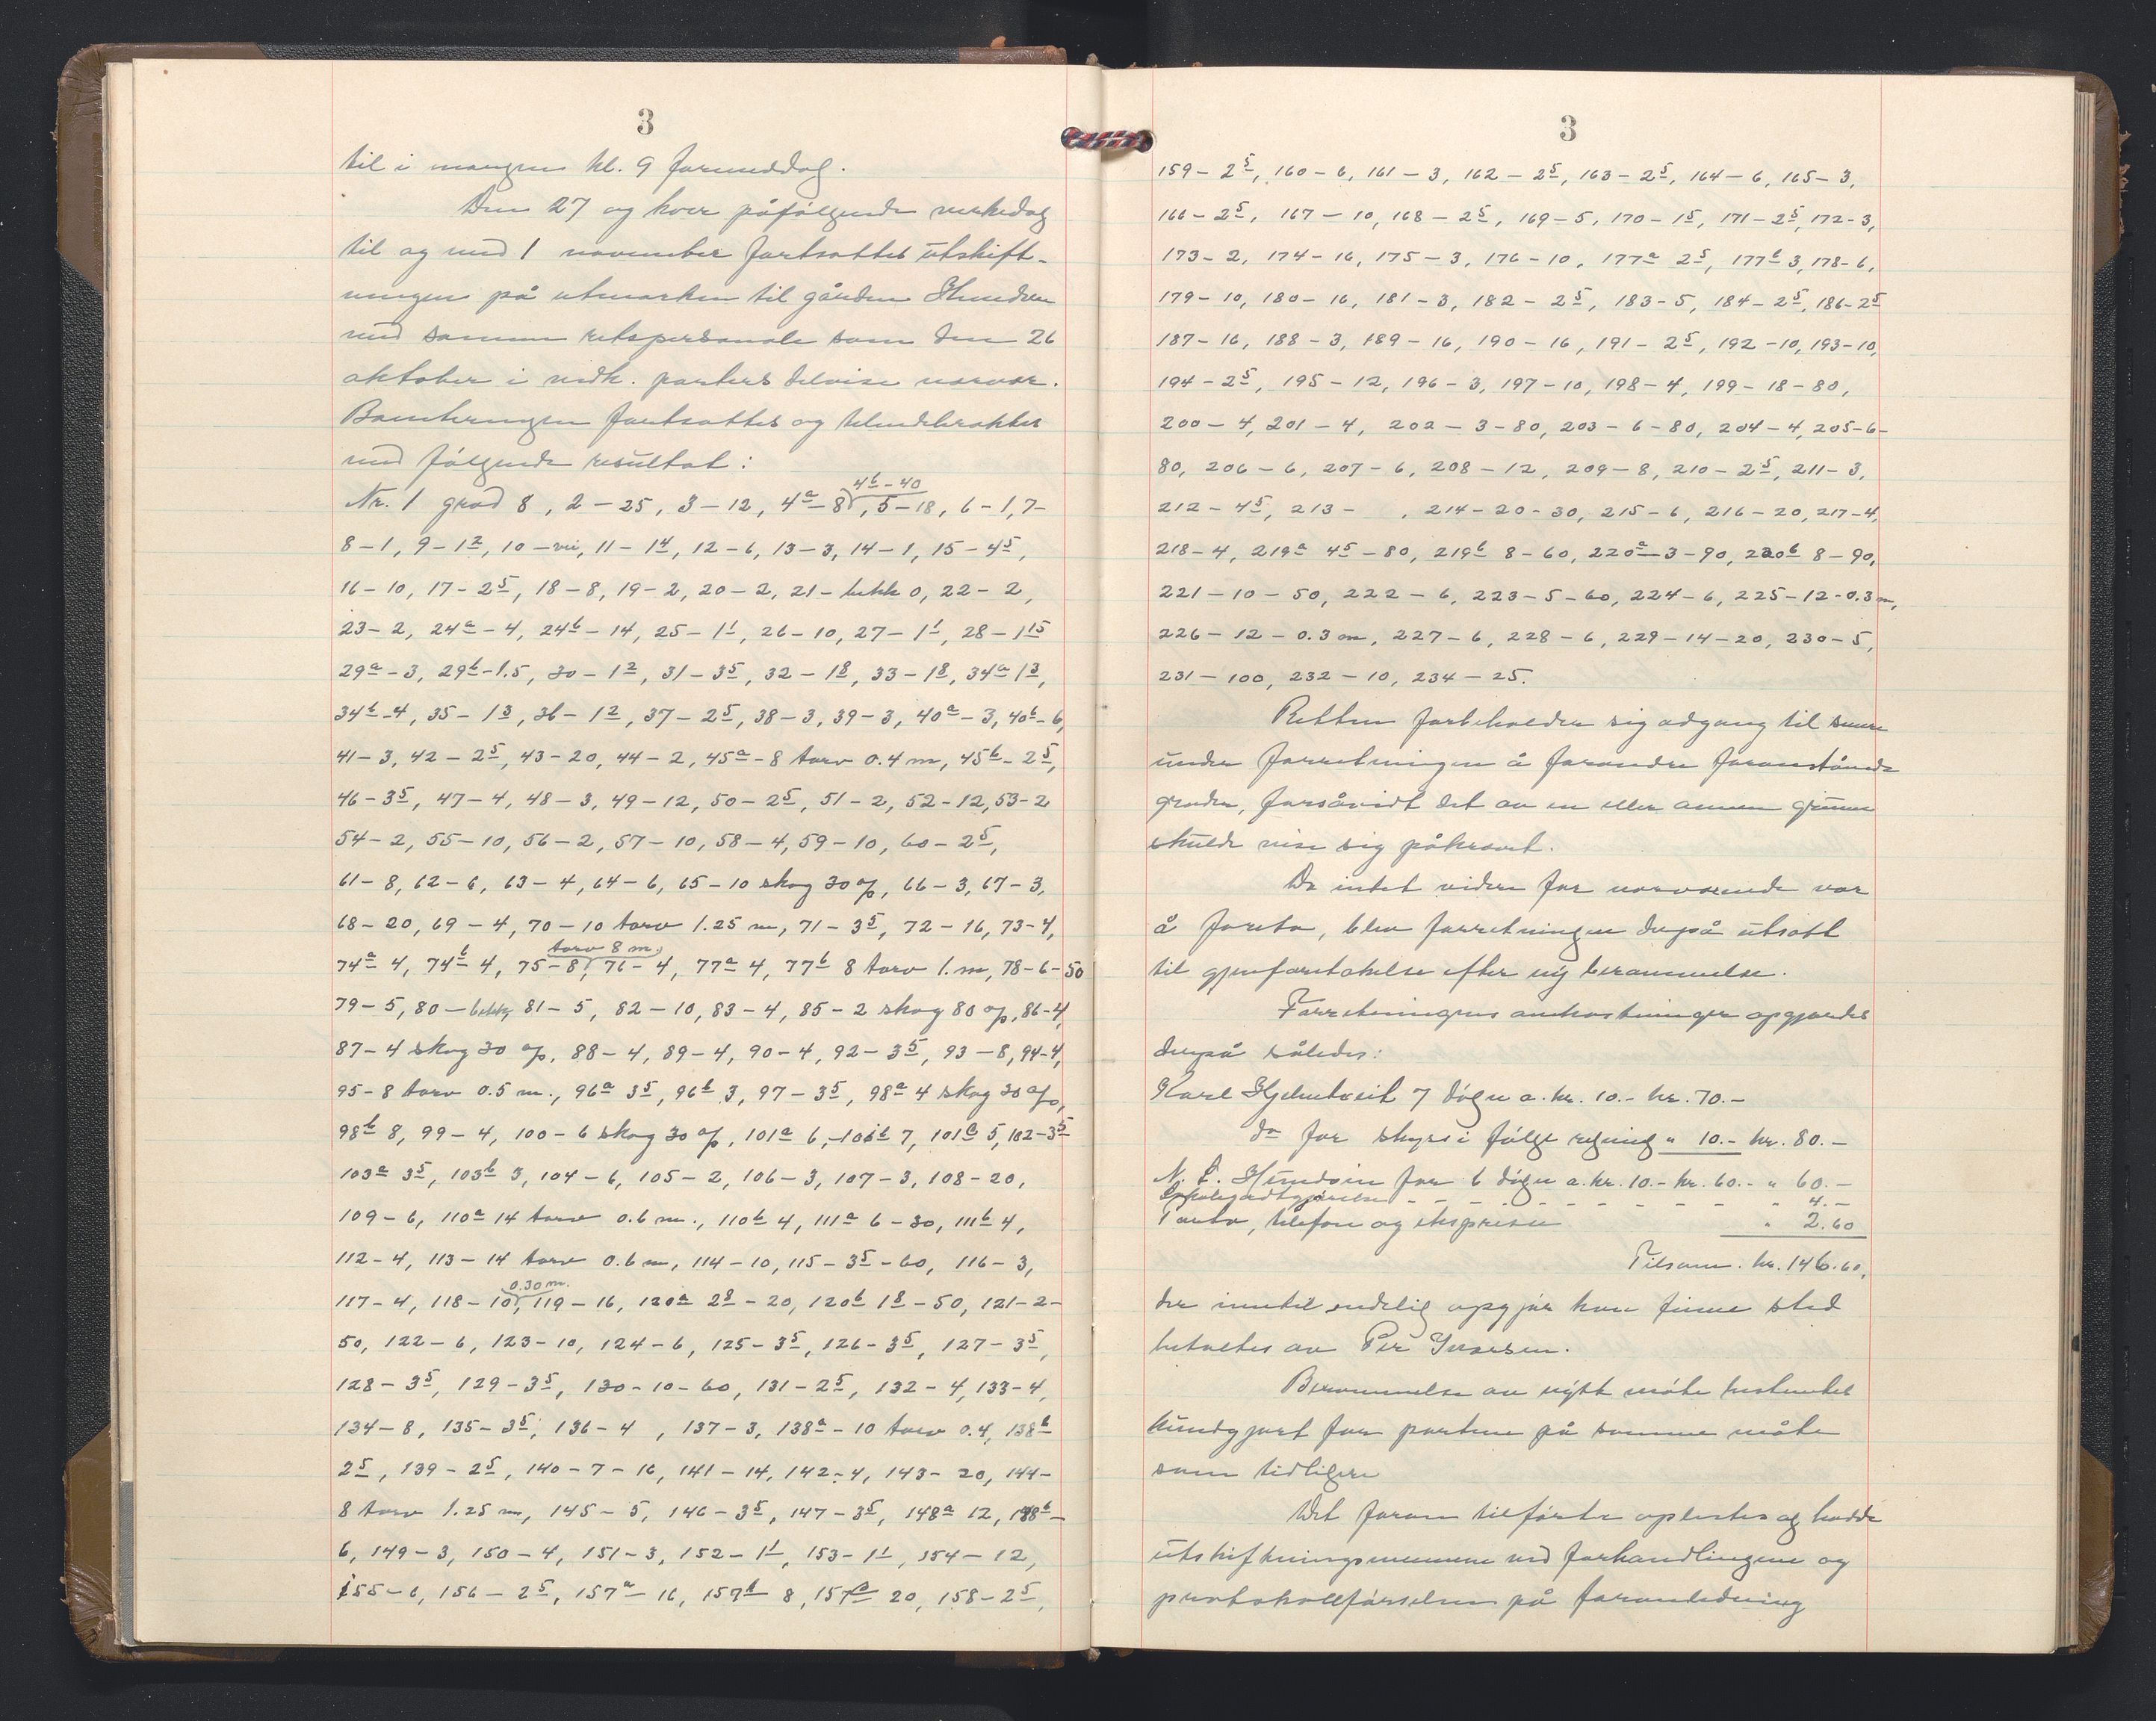 3
til i morgen kl. 9 formeddag.
Den 27 og hver påfølgende virkedag
til og med 1 november fortsattes utskift-
ningen på utmarken til gården Hundsen
med samme retspersonale som den 26
oktober i vedk. parters delvise nærvær.
Boniteringen fortsattes og tilendebraktes
med følgende resultat:
4b-40
Nr. 1 grad 8, 2-25, 3-12, 4a-8, 5-18, 6-1, 7-
8-1, 9-1 2, 10-vei, 11-1 4, 12-6, 13-3, 14-1, 15-4 5,
16-10, 17-2 5, 18-8, 19-2, 20-2, 21-bekk 0, 22-2,
23-2, 24a-4, 24b-14, 25-1 1, 26-10, 27-1 1, 28-1 15
29a-3, 29b-1.5, 30-1 2, 31-3 5, 32-1 8, 33-1 8, 34a 1 3,
34b-4, 35-1 3, 36-1 2, 37-2 5, 38-3, 39-3, 40a-3, 40b-6,
41-3, 42-2 5, 43-20, 44-2, 45a-8 torv 0.4 m, 45b-2 5,
46-3 5, 47-4, 48-3, 49-12, 50-2 5, 51-2, 52-12, 53-2
54-2, 55-10, 56-2, 57-10, 58-4, 59-10, 60-2 5,
61-8, 62-6, 63-4, 64-6, 65-10 skog 30 %, 66-3, 67-3,
68-20, 69-4, 70-10 torv 1.25 m, 71-3 5, 72-16, 73-4,
torv 8 m.
74a 4, 74b 4, 75-8, 76-4, 77a 4, 77b 8 torv 1. m, 78-6-50
79-5, 80-bekk, 81-5, 82-10, 83-4, 85-2 skog 80 %, 86-4,
87-4 skog 30 %, 88-4, 89-4, 90-4, 92-3 5, 93-8, 94-4,
95-8 torv 0.5 m., 96a 3 5, 96b 3, 97-3 5, 98a 4 skog 30 %,
98b 8, 99-4, 100-6 skog 30 %, 101a 6, 101b 7, 101c 5, 102-3 5
103a 3 5, 103b 3, 104-6, 105-2, 106-3, 107-3, 108-20,
109-6, 110a 14 torv 0.6 m., 110b 4, 111a 6-30, 111b 4,
112-4, 113-14 torv 0.6 m, 114-10, 115-3 5-60, 116-3,
0.30 m.
117-4, 118-10, 119-16, 120a 2 8-20, 120b 1 8-50, 121-2-
50, 122-6, 123-10, 124-6, 125-3 5, 126-3 5, 127-3 5,
128-3 5, 129-3 5, 130-10-60, 131-2 5, 132-4, 133-4,
134-8, 135-3 5, 136-4, 137-3, 138a-10 torv 0.4, 138b
2 5, 139-2 5, 140-7-16, 141-14, 142-4, 143-20, 144-
8 torv 1.25 m, 145-5, 146-3 5, 147-3 5, 148a 12, 148b-
6, 149-3, 150-4, 151-3, 152-1 1, 153-1 1, 154-12,
155-6, 156-2 5, 157a-16, 157b 8, 157c 20, 158-2 5,
3
159-2 5, 160-6, 161-3, 162-2 5, 163-2 5, 164-6, 165-3,
166-2 5, 167-10, 168-2 5, 169-5, 170-1 5, 171-2 5, 172-3,
173-2, 174-16, 175-3, 176-10, 177a 2 5, 177b 3, 178-6,
179-10, 180-16, 181-3, 182-2 5, 183-5, 184-2 5, 186-2 5
187-16, 188-3, 189-16, 190-16, 191-2 5, 192-10, 193-10,
194-2 5, 195-12, 196-3, 197-10, 198-4, 199-18-80,
200-4, 201-4, 202-3-80, 203-6-80, 204-4, 205-6-
80, 206-6, 207-6, 208-12, 209-8, 210-2 5, 211-3,
212-4 5, 213- , 214-20-30, 215-6, 216-20, 217-4,
218-4, 219a 4 5-80, 219b 8-60, 220a-3-90, 220b 8-90,
221-10-50, 222-6, 223-5-60, 224-6, 225-12-0.3 m,
226-12-0.3 m, 227-6, 228-6, 229-14-20, 230-5,
231-100, 232-10, 234-25.
Retten forbeholder sig adgang til senere
under forretningen å forandre foranstående
grader, forsåvidt det av en eller annen grunn
skulde vise sig påkrævet.
Da intet videre for nærværende var
å foreta, blev forretningen derpå utsatt
til gjenforetakelse efter ny berammelse.
Forretningens omkostninger opgjordes
derpå således:
Karl Hjelmtveit 7 døgn a. kr. 10.- kr. 70.-
do for skyss i følge regning " 10.- kr. 80.-
N. L. Hundven for 6 døgn a. kr. 10.- kr. 60.- " 60.-
Lokalgodtgjørelse - - - - - - - - " 4.-
Porto, telefon og ekspresse " 2.60
Tilsam. kr. 146.60,
der inntil endelig opgjør kan finne sted
betaltes av Per Ivarsen.
Berammelse av nytt møte besluttet
kundgjort for partene på samme måte
som tidligere
Det foran tilførte oplestes og hadde
utskiftningsmennene ved forhandlingene og
protokollførselen på foranledning